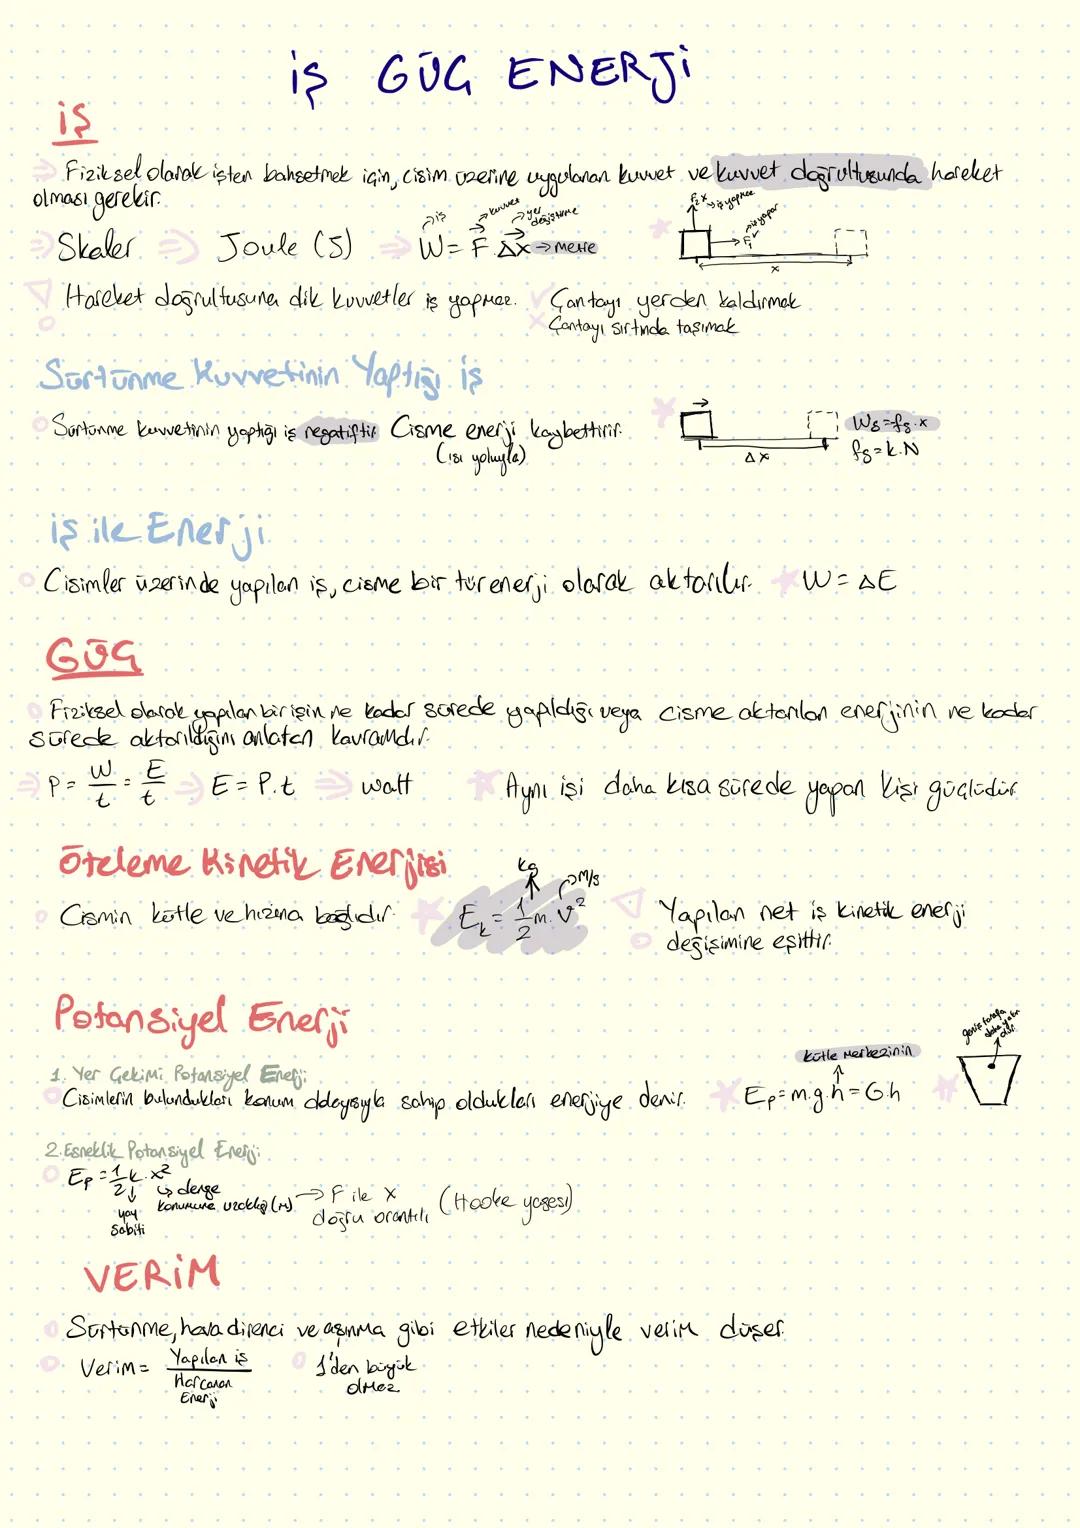 İŞ GÜÇ ENERJİ
İŞ
⇒ Fiziksel olarak işten bahsetmek için, cisim üzerine uygulanan kuvvet ve kuvvet doğrultusunda hareket
olması gerekir.
⇒ Skaler ⇒ Joule (J) ⇒ W = F. Δx → metre
iş
kuvvet
yer değiştirme
F₂ X → iş yapmaz
F₁ ✓ → iş yapar
x
Hareket doğrultusuna dik kuvvetler iş yapmaz.
✓ Çantayı yerden kaldırmak
X Çantayı sırtında taşımak
Sürtünme Kuvvetinin Yaptığı İş
Sürtünme kuvvetinin yaptığı iş negatiftir. Cisme enerji kaybettirir.
(ısı yoluyla)
Δx
Ws=-fs.x
fs=k.N
İş ile Enerji
Cisimler üzerinde yapılan iş, cisme bir tür enerji olarak aktarılır. W = ΔE
GÜÇ
Fiziksel olarak yapılan bir işin ne kadar sürede yapıldığı veya cisme aktarılan enerjinin ne kadar
sürede aktarıldığını anlatan kavramdır.
⇒ P = W/t = E/t ⇒ E = P.t ⇒ watt Aynı işi daha kısa sürede yapan kişi güçlüdür
Öteleme Kinetik Enerjisi
Cismin kütle ve hızına bağlıdır. Ek = 1/2 m. v²
kg
m/s
Yapılan net iş kinetik enerji
değişimine eşittir.
Potansiyel Enerji
1. Yer Çekimi Potansiyel Enerji:
Cisimlerin bulundukları konum dolayısıyla sahip oldukları enerjiye denir. Ep=m.g.h=G.h
kütle merkezinin
geniş tarafa daha yakın olur
2. Esneklik Potansiyel Enerji:
Ep = 1/2 k. x²
yay sabiti
denge konumuna uzaklığı (m)
→ F ile x
doğru orantılı (Hooke yasası)
VERİM
Sürtünme, hava direnci ve aşınma gibi etkiler nedeniyle verim düşer.
Verim = Yapılan iş / Harcanan Enerji
1'den büyük
olmaz